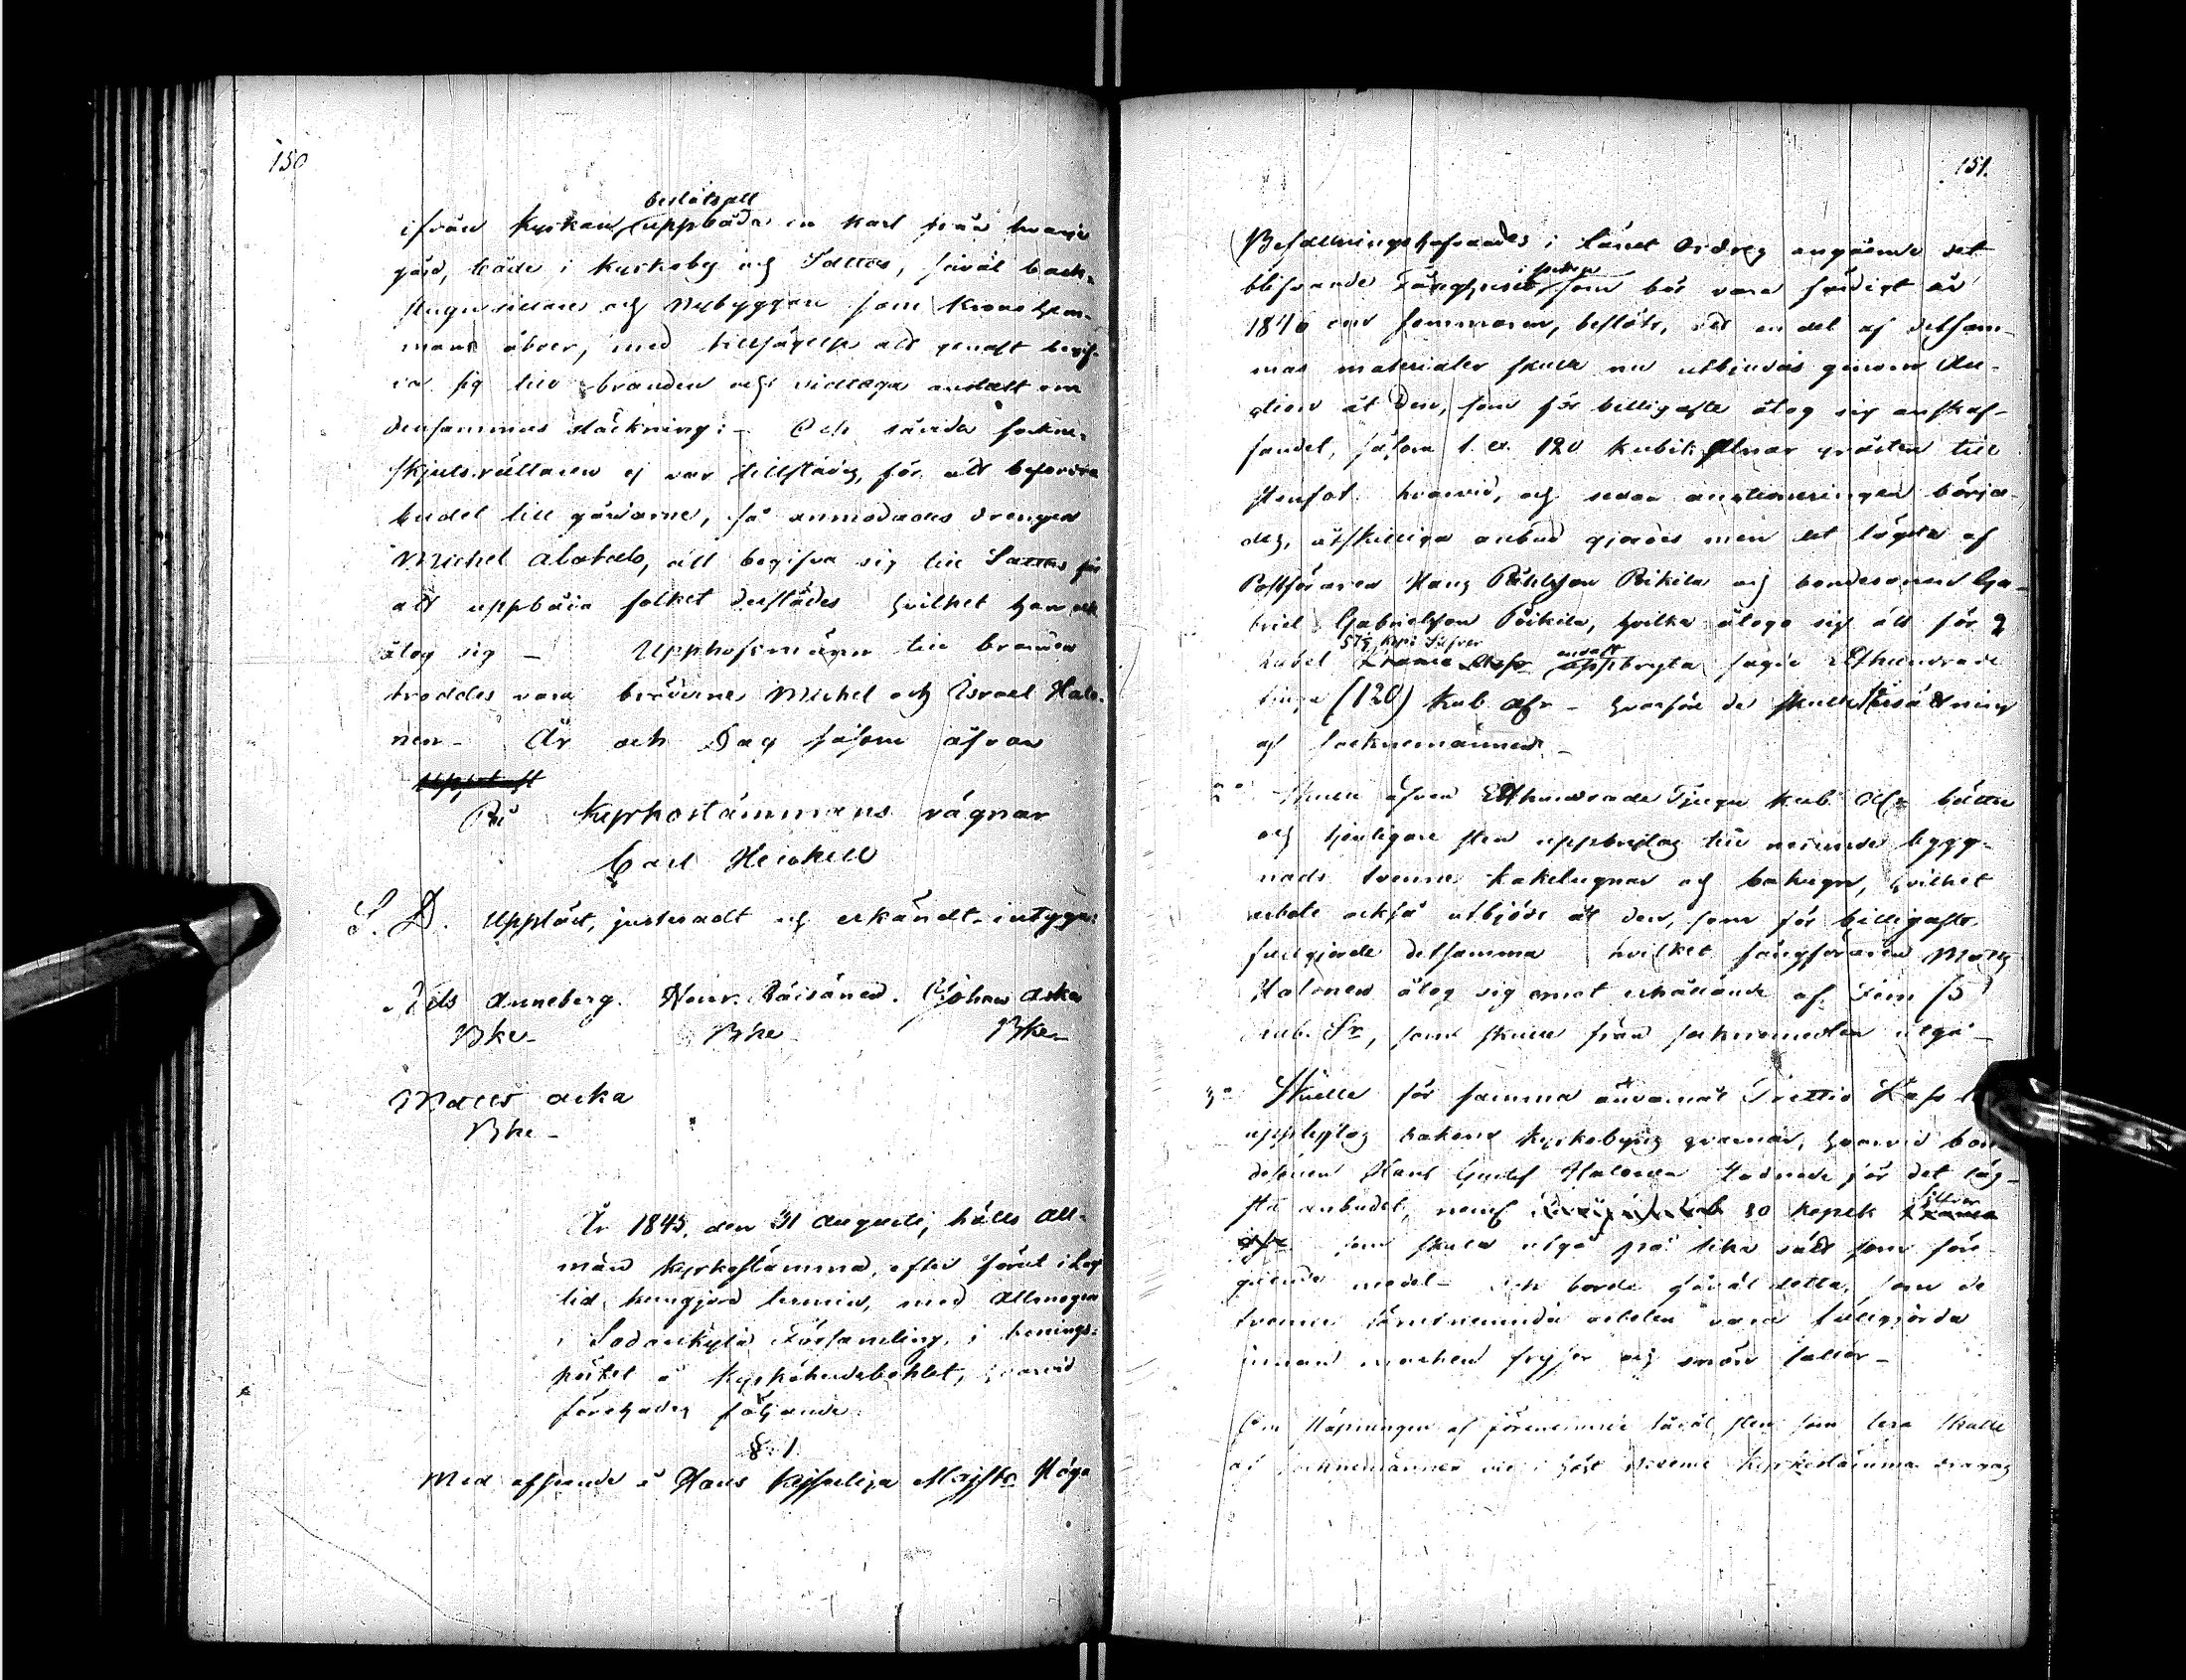 150
beslöts att
ifrån Kyrkan, uppbåda en karl från hvarje
gård, både i Kyrkoby och Sattas, såväl back-
stugusittare och Nybyggare som Kronohem-
mans åboer, med tillsägelse att genast begif-
va sig till branden och vidtaga anstalt om
densammas släckning: - Och såvida sockne-
skjutsrättaren ej var tillstädes, för att befordra
budet till gårdarne, så anmodades drengen
Michel Alatalo, att begifva sig till Sattas för
att uppbåda folket derstädes hvilket han ock
åtog sig - Upphofsmän till branden
troddes vara bröderne Michel och Israel Halo-
nen - År och Dag såsom ofvan
På Kyrkostämmans vägnar
Carl Heickell
S. D. Uppläst, justeradt och erkändt - intyga:
Nils Anneberg. Henr. Räisänen. Johan Aska
Bke - Bke - Bke -
Matts Aska
Bke -
År 1845, den 31 Augusti, hölls All-
män Kyrkostämma, efter förut i Lag
tid kungjord termin, med Allmogen
i Sodankylä Församling, i
pörtet å Kyrkoherdebohlet, hvarvid
förehades följande:
§. 1.
Med afseende å Hans Kejserliga Majsts Höga
151.
Befallningshafvandes i Länet Ordres angående det
blifvande Fånghuset, som bör vara färdigt år
1846 om sommaren, beslöts, att en del af detsam-
mas materialer skulle nu utbjudas genom Au-
ction åt den, som för billigaste åtog sig anskaf-
fandet, såsom 1.o 120 kubik Alnar gråsten till
stenfot hvarvid, och sedan auctioneringen börja-
des, åtskilliga anbud gjordes men det lägsta af
Postföraren Hans Pikila och bondesonen Ga-
briel Gabrielsson Pikila, hvilka åtogo sig att för 2
57 1/7 Kop: Silfver
uppbryta sagde Etthundrade
tjugu (120) Kub. Alr - hvarför de skulle
af socknemännen -
2o Skulle äfven Etthundrade Tjugu Kub. Alr bättre
och tjenligare sten uppbrytas till nämnde bygg-
nads tvenne kakelugnar och bakugn, hvilket
arbete också utbjöds åt den, som för billigaste
fullgjorde detsamma hvilket fångföraren Matts
Halonen åtog sig emot erhållande af Fem (5)
Rub. Sr, som skulle från socknemedlen utgå -
3o Skulle för samma ändamål Trettio Lass
upptagas bakom Kyrkobyns qvarnar, hvarvid bon-
desonen Hans Gustaf Halonen stadnade för det läg-
sta anbudet, neml 30 kopek Silfver
som skulle utgå på lika sätt som före-
gående medel - och borde såväl detta, som de
tvenne förutnämnda arbeten vara fullgjorda
innan marken fryser och snön faller -
Om släpningen af förenämnde såväl sten som lera skulle
af socknemännen vid i höst blifvande Kyrkostämma dragas